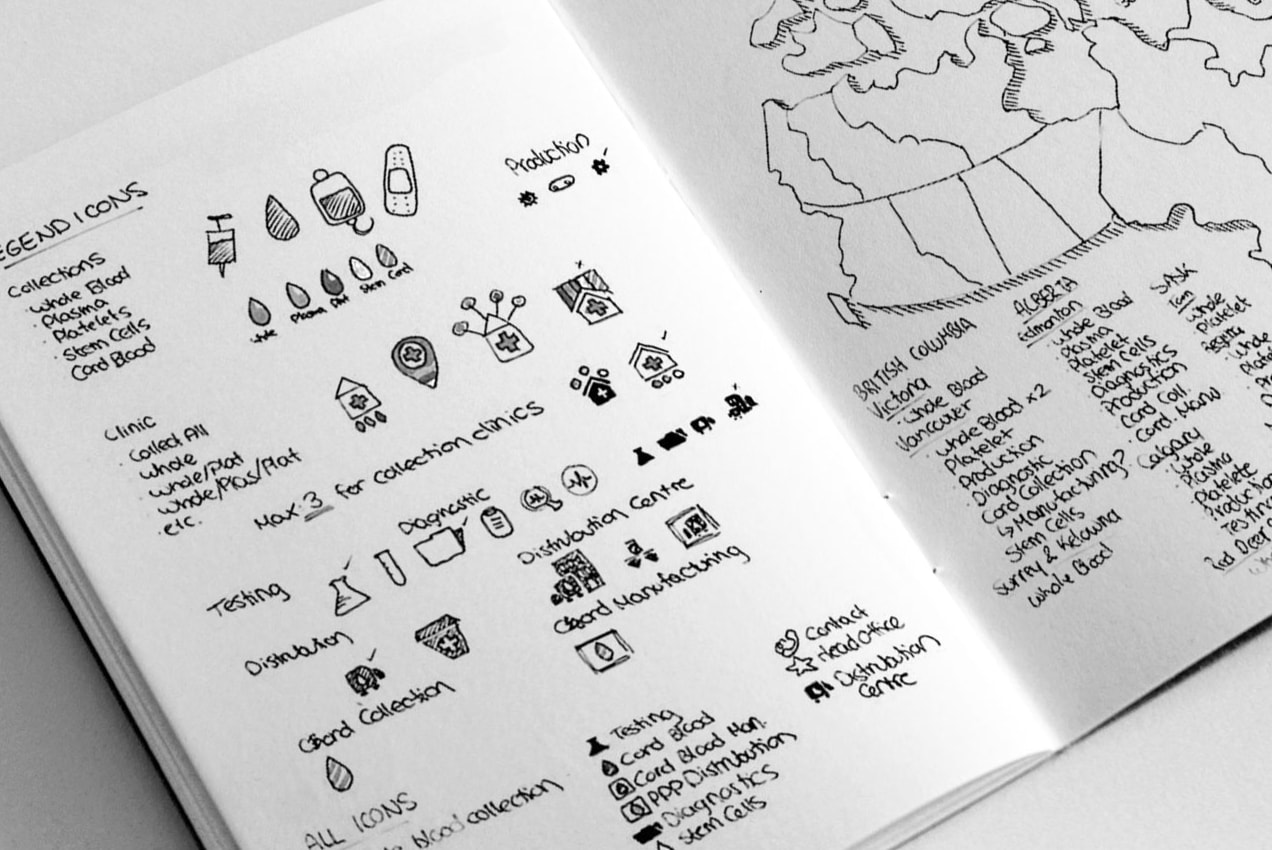 EGEND ICONS
Collections
· Whole Blood
· Plasma
· Platelets
· Stem Cells
Cord Blood
Whole
Plasma
Plat
Stem
Cord
Production
Clinic
· Collect All
· whole
· whole/Plat
whole/Plas/Plat
· etc.
Max: 3 for collection clinics
Testing
Diagnostic
Distribution Centre
Distribution
Cord Manufacturing
Cord Collection
ALL ICONS
blood collection
Contact
Head Office
Distribution
Centre
Testing
Cord Blood
Cord Blood Man.
PPP Distribution
Diagnostics
Stem Cells
BRITISH COLUMBIA
Victoria
· Whole Blood
Vancouver
· Whole Blood x2
Platelet
Production
· Diagnostic
Cord Collection
↳ Manufacturing?
Stem Cells
Surrey & Kelowna
whole Blood
ALBERTA
Edmonton
· Whole Blood
Plasma
Platelet
Stem Cells
Diagnostics
· Production
Cord Coll.
· Cord. Manu
Calgary
· Whole
Plasma
Platelets
Production
Testing
Red Deer
SASK
· Whole
Platelet
Regina
· Whole
Plate